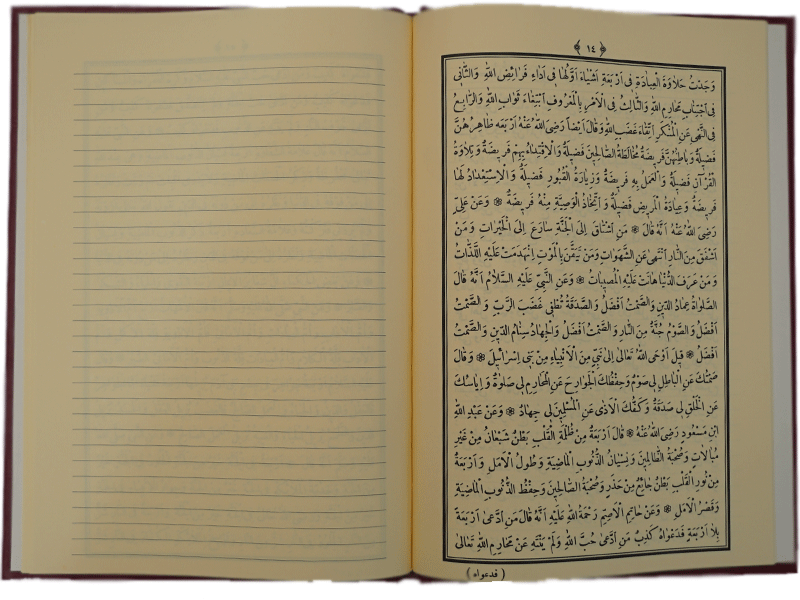 ﴿ ١٤ ﴾
وَجَدْتُ حَلَاوَةَ الْعِبَادَةِ فِى اَرْبَعَةِ اَشْيَاءَ اَوَّلُهَا فِى اَدَاءِ فَرَائِضِ اللّٰهِ وَالثَّانِى
فِى اجْتِنَابِ مَحَارِمِ اللّٰهِ وَالثَّالِثُ فِى الْاَمْرِ بِالْمَعْرُوفِ ابْتِغَاءَ ثَوَابِ اللّٰهِ وَالرَّابِعُ
فِى النَّهْىِ عَنِ الْمُنْكَرِ اِتِّقَاءَ غَضَبِ اللّٰهِ وَقَالَ اَيْضاً رَضِىَ اللّٰهُ عَنْهُ اَرْبَعَه ظَاهِرُهُنَّ
فَضِيلَةٌ وَبَاطِنُهُنَّ فَرِيضَةٌ مُخَالَطَةُ الصَّالِحِينَ فَضِيلَةٌ وَالْاِقْتِدَاءُ بِهِمْ فَرِيضَةٌ وَتِلَاوَةُ
الْقُرْآنِ فَضِيلَةٌ وَالْعَمَلُ بِهِ فَرِيضَةٌ وَزِيَارَةُ الْقُبُورِ فَضِيلَةٌ وَالْاِسْتِعْدَادُ لَهَا
فَرِيضَةٌ وَعِيَادَةُ الْمَرِيضِ فَضِيلَةٌ وَاتِّخَاذُ الْوَصِيَّةِ مِنْهُ فَرِيضَةٌ ❁ وَعَنْ عَلِىٍّ
رَضِىَ اللّٰهُ عَنْهُ اَنَّهُ قَالَ ❁ مَنِ اشْتَاقَ اِلَى الْجَنَّةِ سَارَعَ اِلَى الْخَيْرَاتِ وَمَنْ
اَشْفَقَ مِنَ النَّارِ انْتَهٰى عَنِ الشَّهَوَاتِ وَمَنْ تَيَقَّنَ بِالْمَوْتِ اِنْهَدَمَتْ عَلَيْهِ اللَّذَّاتُ
وَمَنْ عَرَفَ الدُّنْيَا هَانَتْ عَلَيْهِ الْمُصِيبَاتُ ❁ وَعَنِ النَّبِىِّ عَلَيْهِ السَّلَامُ اَنَّهُ قَالَ
الصَّلوَاةُ عِمَادُ الدِّينِ وَالصَّمْتُ اَفْضَلُ وَالصَّدَقَةُ تُطْفِئُ غَضَبَ الرَّبِّ وَالصَّمْتُ
اَفْضَلُ وَالصَّوْمُ جُنَّةٌ مِنَ النَّارِ وَالصَّمْتُ اَفْضَلُ وَالْجِهَادُ سِنَامُ الدِّينِ وَالصَّمْتُ
اَفْضَلُ ❁ قِيلَ اَوْحَى اللّٰهُ تَعَالٰى اِلٰى نَبِىٍّ مِنَ الْاَنْبِيَاءِ مِنْ بَنِى اِسْرَائِيلَ ❁ وَقَالَ
صَمْتُكَ عَنِ الْبَاطِلِ لِى صَوْمٌ وَحِفْظُكَ الْجَوَارِحَ عَنِ الْمَحَارِمِ لِى صَلوَاةٌ وَاِيَاسُكَ
عَنِ الْخَلْقِ لِى صَدَقَةٌ وَكَفُّكَ الْاَذٰى عَنِ الْمُسْلِمِينَ لِى جِهَادٌ ❁ وَعَنْ عَبْدِ اللّٰهِ
ابْنِ مَسْعُودٍ رَضِىَ اللّٰهُ عَنْهُ ❁ قَالَ اَرْبَعَةٌ مِنْ ظُلْمَةِ الْقَلْبِ بَطْنٌ شَبْعَانُ مِنْ غَيْرِ
مُبَالَاتٍ وَصُحْبَةُ الظَّالِمِينَ وَنِسْيَانُ الذُّنُوبِ الْمَاضِيَةِ وَطُولُ الْاَمَلِ وَاَرْبَعَةٌ
مِنْ نُورِ الْقَلْبِ بَطْنٌ جَائِعٌ مِنْ حَذَرٍ وَصُحْبَةُ الصَّالِحِينَ وَحِفْظُ الذُّنُوبِ الْمَاضِيَةِ
وَقَصْرُ الْاَمَلِ ❁ وَعَنْ حَاتِمِ الْاَصَمِّ رَحْمَةُ اللّٰهِ عَلَيْهِ اَنَّهُ قَالَ مَنِ ادَّعٰى اَرْبَعَةً
بِلَا اَرْبَعَةٍ فَدَعْوَاهُ كَذِبٌ مَنِ ادَّعٰى حُبَّ اللّٰهِ وَلَمْ يَنْتَهِ عَنْ مَحَارِمِ اللّٰهِ تَعَالٰى
( فدعواه )